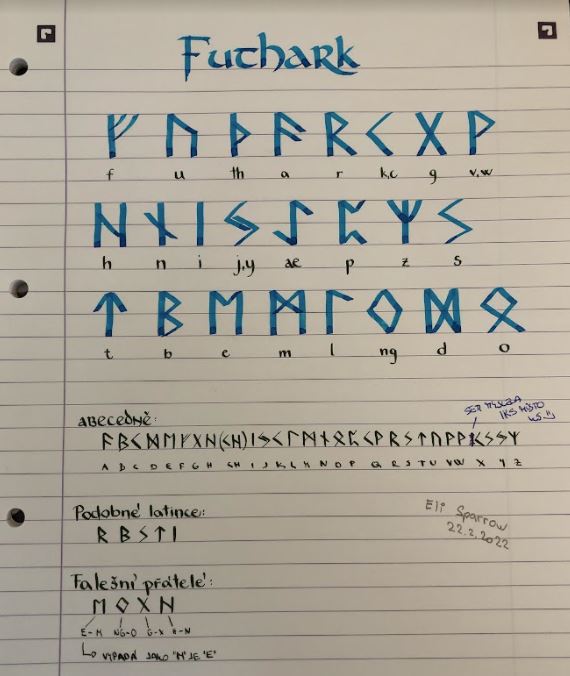 Futhark
ᚠ ᚢ ᚦ ᚨ ᚱ ᚲ ᚷ ᚹ
f u th a r k,c g v,w
ᚺ ᚾ ᛁ ᛃ ᛇ ᛈ ᛉ ᛊ
h n i j,y ae p z s
ᛏ ᛒ ᛖ ᛗ ᛚ ᛜ ᛞ ᛟ
t b e m l ng d o
IKS MÍSTO
KS :)
ABECEDNĚ:
ᚨᛒᚲᛞᛖᚠᚷᚺ(ᚲᚺ)ᛁᛃᚲᛚᛗᚾᛟᛈᚲᚹᚱᛊᛏᚢᚹᚹᚲᛊᛃᛉ
A B C D E F G H CH I J K L M N O P Q R S T U V W X Y Z
Podobné latince:
ᚱ ᛒ ᛊ ᛏ ᛁ
Eli Sparrow
22.2.2022
Falešní přátelé:
ᛖ ᛜ ᚷ ᚺ
E-M NG-O G-X H-N
VYPADÁ JAKO "M" JE "E"